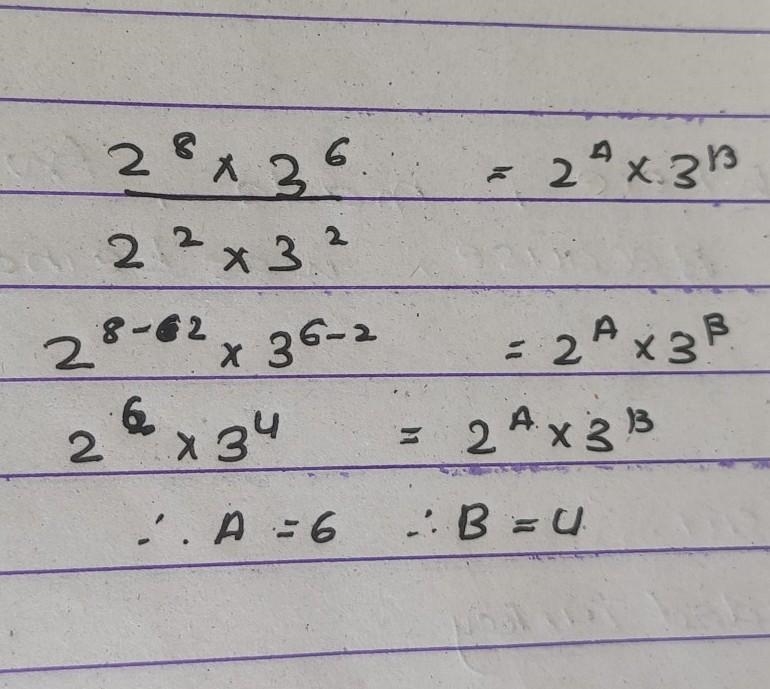 2⁸ × 3⁶ = 2ᴬ × 3ᴮ
2² × 3²
2⁸⁻² × 3⁶⁻² = 2ᴬ × 3ᴮ
2⁶ × 3⁴ = 2ᴬ × 3ᴮ
∴ A = 6 ∴ B = 4